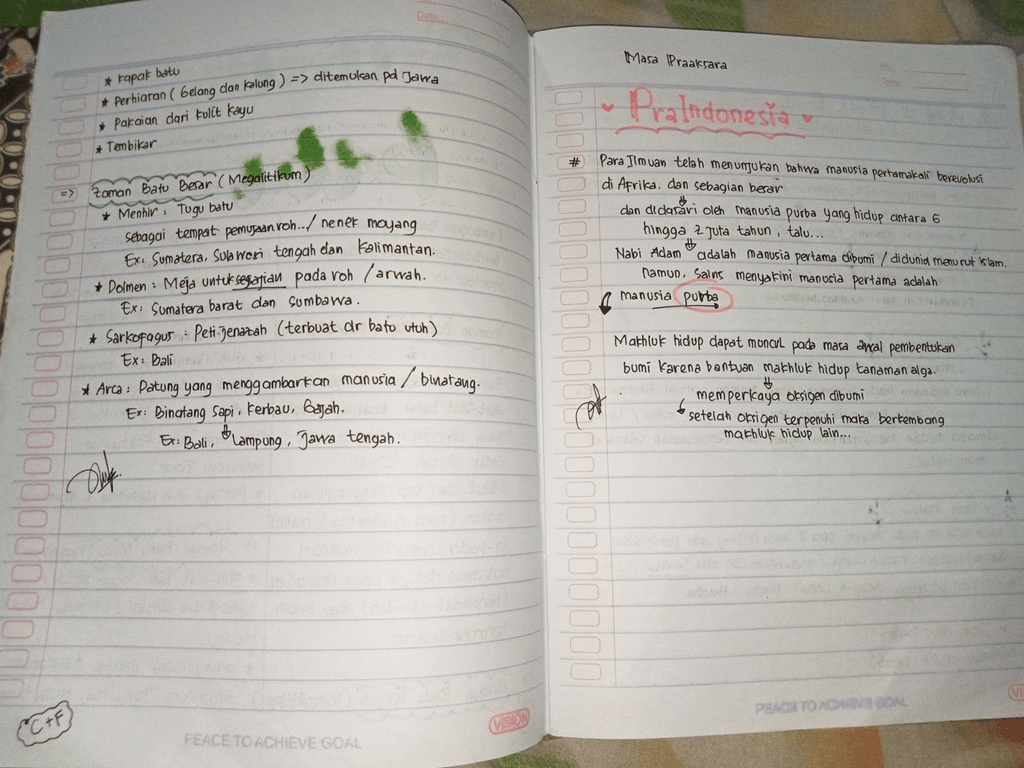 Date:
* Kapak batu
* Perhiaran ( Gelang dan Kalung ) => ditemukan pd Jawa
* Pakaian dari kulit kayu
* Tembikar
=> Zaman Batu Besar (Megalitikum)
* Menhir : Tugu batu
sebagai tempat pemujaan roh../ nenek moyang
Ex: Sumatera, Sulawesi tengah dan Kalimantan.
* Dolmen : Meja untuk segajian pada roh / arwah.
Ex: Sumatera barat dan Sumbawa.
* Sarkofagus : Peti jenazah (terbuat dr batu utuh)
Ex: Bali
* Arca : Patung yang menggambarkan manusia / binatang.
Ex: Binatang Sapi, Kerbau, Gajah.
Ex: Bali, Lampung, Jawa tengah.
C+F
PEACE TO ACHIEVE GOAL
VISION
Masa Praaksara
PraIndonesia
# Para Ilmuan telah menunjukan bahwa manusia pertamakali berevolusi
di Afrika. dan sebagian besar
dan didasari oleh manusia purba yang hidup antara 6
hingga 2 juta tahun, lalu...
Nabi Adam adalah manusia pertama dibumi / didunia menurut Islam.
namun, Sains menyakini manusia pertama adalah
manusia purba
Makhluk hidup dapat muncul pada masa awal pembentukan
bumi karena bantuan makhluk hidup tanaman alga.
memperkaya oksigen dibumi
setelah oksigen terpenuhi maka berkembang
makhluk hidup lain...
PEACE TO ACHIEVE GOAL